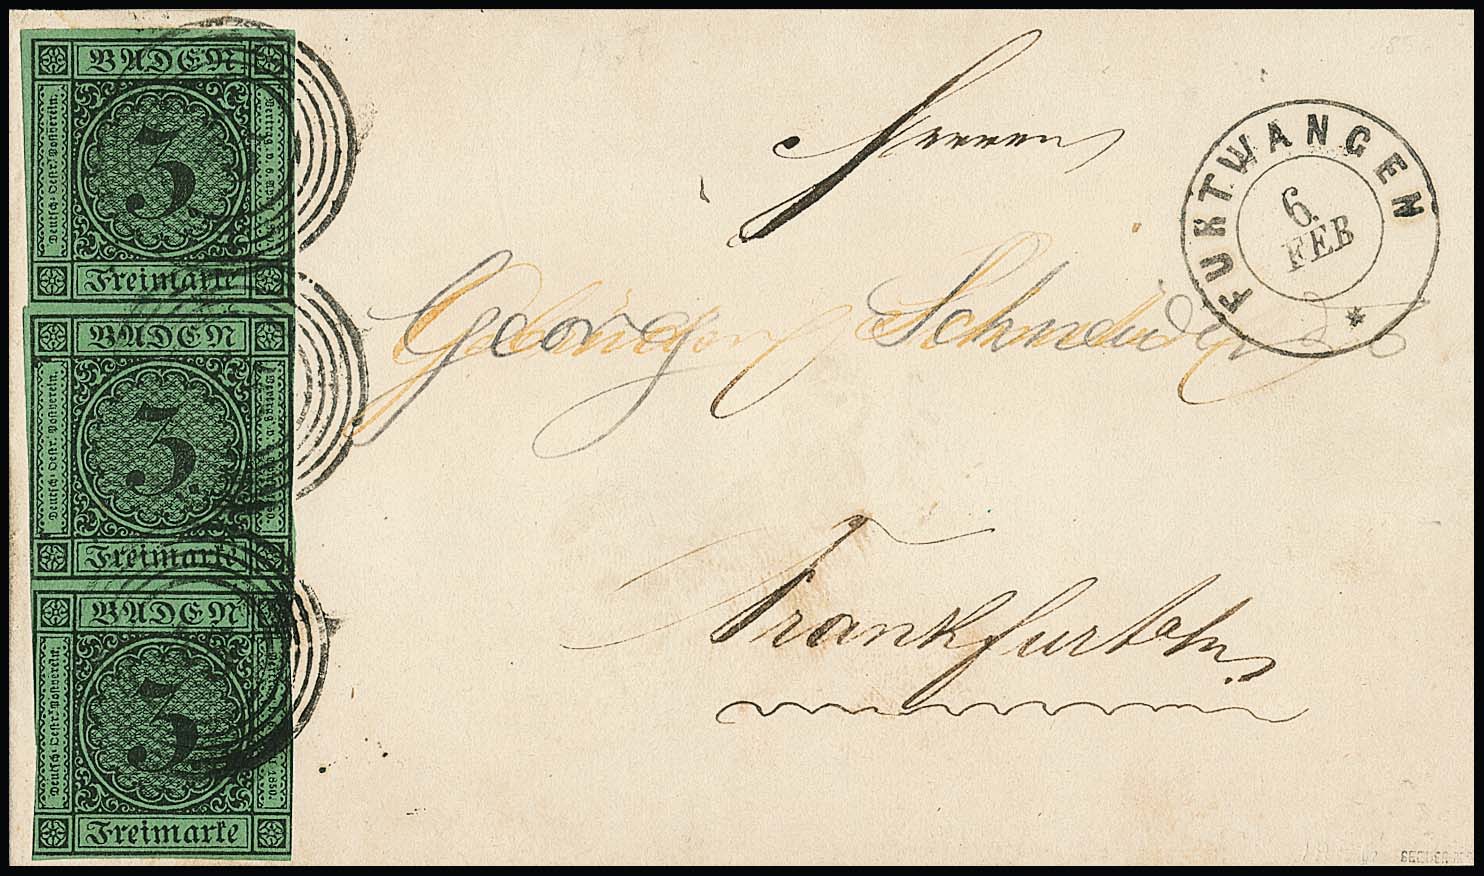 BADEN
Deutsch: Oestr. Postverein.
3.
Freimarke
BADEN
Deutsch: Oestr. Postverein.
3.
Freimarke
BADEN
Deutsch: Oestr. Postverein.
3.
1850.
Freimarke
Herren
Georg Schneider
Frankfurt
FURTWANGEN
6.
FEB
*